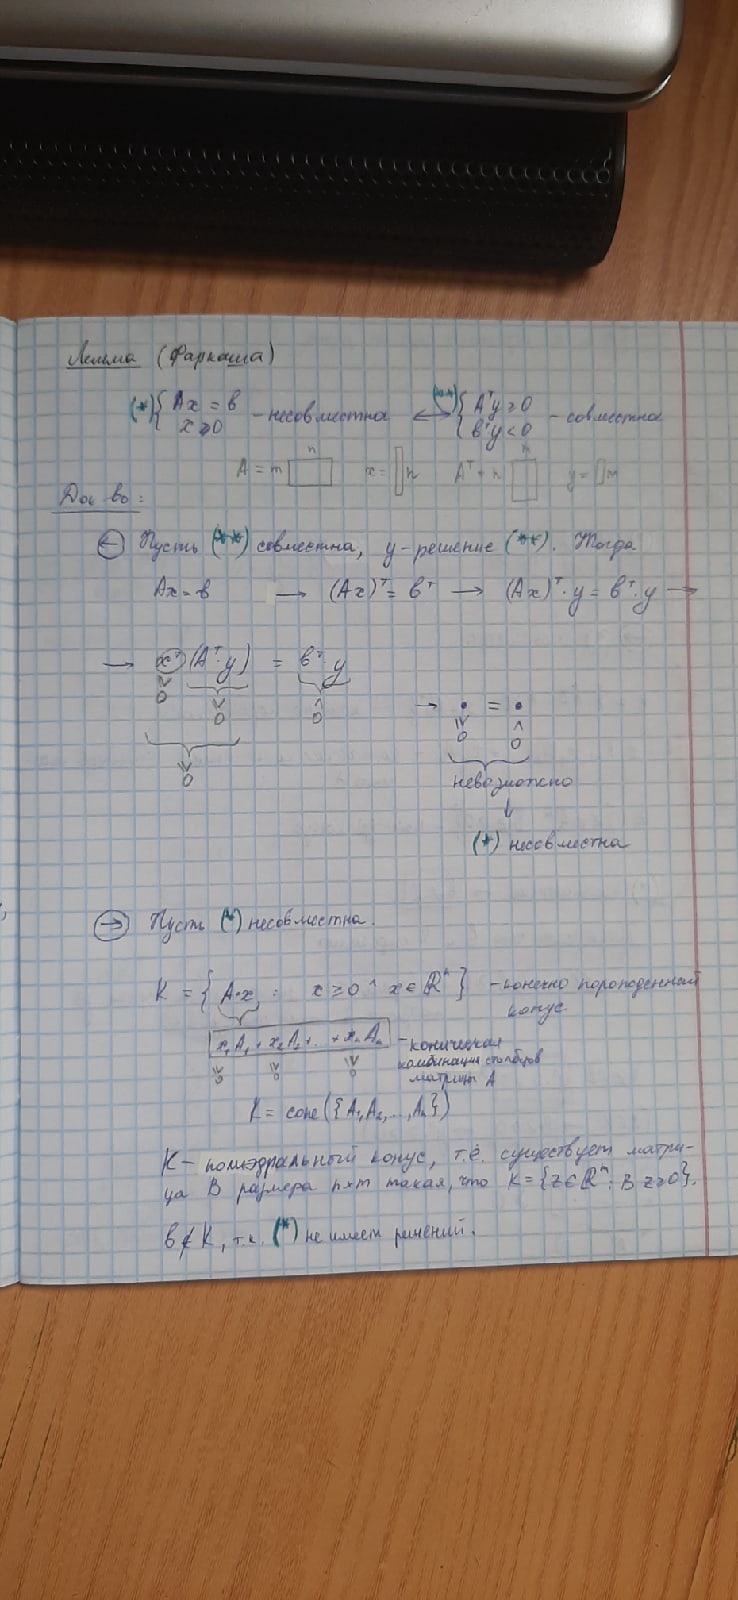 Лемма (Фаркаша)
(*) { Ax = b, x ≥ 0 - несовместна ⟷ (**) { Aᵀy ≥ 0, bᵀy < 0 - совместна
A = m n x = n Aᵀ = n m y = m
Док-во:
← Пусть (**) совместна, y - решение (**). Тогда
Ax = b → (Ax)ᵀ = bᵀ → (Ax)ᵀ · y = bᵀ · y →
→ xᵀ (Aᵀ · y) = bᵀ · y
≥ 0 ≥ 0 < 0
→ · = ·
≥ 0 < 0
≥ 0
невозможно
↓
(*) несовместна
→ Пусть (*) несовместна.
K = { A·x : x ≥ 0 ^ x ∈ ℝⁿ } - конечно порожденный
конус
x₁A₁ + x₂A₂ + .. + xₙAₙ - коническая
комбинация столбцов
матрицы A
≥ 0 ≥ 0 ≥ 0
K = cone ({A₁, A₂, ..., Aₙ})
K - полиэдральный конус, т.е. существует матри-
ца B размера n×m такая, что K = {z ∈ ℝⁿ : B z ≥ 0}.
b ∉ K, т.к. (*) не имеет решений.